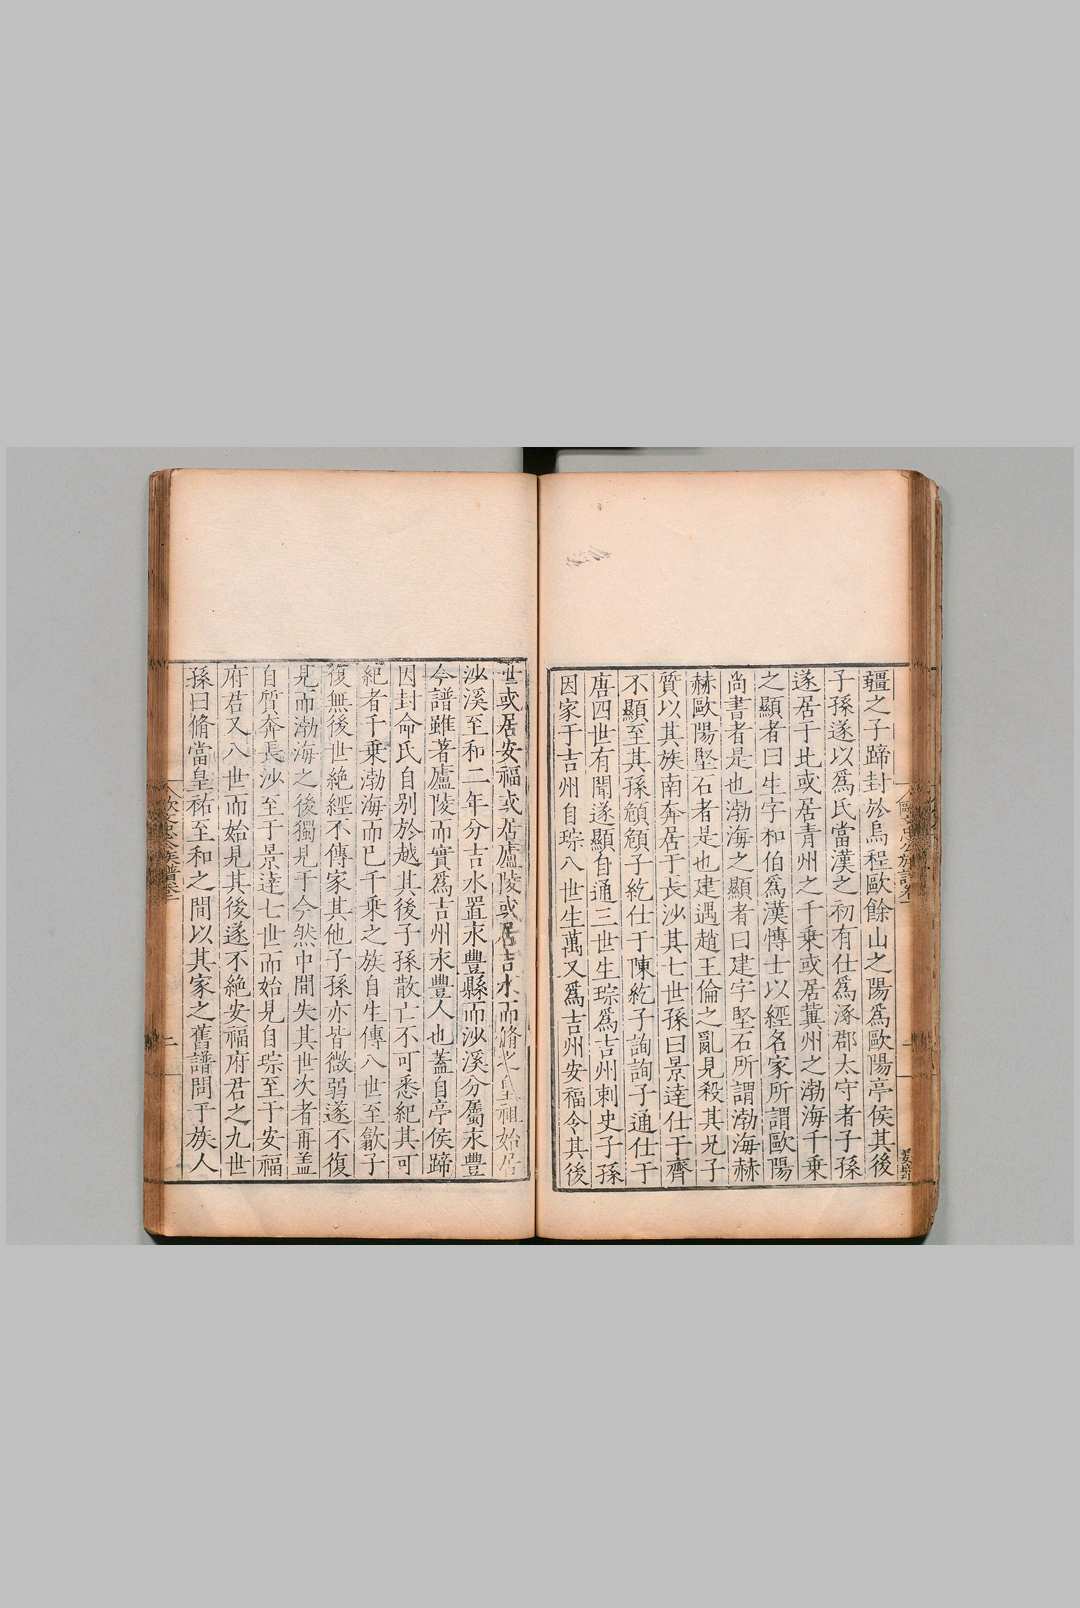 疆之子蹄封於烏程歐餘山之陽爲歐陽亭侯其後
子孫遂以爲氏當漢之初有仕爲涿郡太守者子孫
遂居于北或居青州之千乘或居冀州之渤海千乗
之顯者曰生字和伯爲漢愽士以經名家所謂歐陽
尚書者是也渤海之顯者曰建字堅石所謂渤海赫
赫歐陽堅石者是也建遇趙王倫之亂見殺其兄子
質以其族南奔居于長沙其七世孫曰景達仕于齊
不顯至其孫頠頠子紇仕于陳紇子詢詢子通仕于
唐四世有聞遂顯自通三世生琮爲吉州刺史子孫
因家于吉州自琮八世生萬又爲吉州安福令其後
世或居安福或居廬陵或居吉水而脩之皇祖始居
沙溪至和二年分吉水置永豐縣而沙溪分屬永豐
今譜雖著廬陵而實爲吉州永豐人也蓋自亭侯蹄
因封命氏自別於越其後子孫散亡不可悉紀其可
紀者千乗渤海而巳千乗之族自生傳八世至歙子
復無後世絶經不傳家其他子孫亦皆微弱遂不復
見而渤海之後獨見于今然中間失其世次者再盖
自質奔長沙至于景達七世而始見自琮至于安福
府君又八世而始見其後遂不絶安福府君之九世
孫曰脩當皇祐至和之間以其家之舊譜問于族人